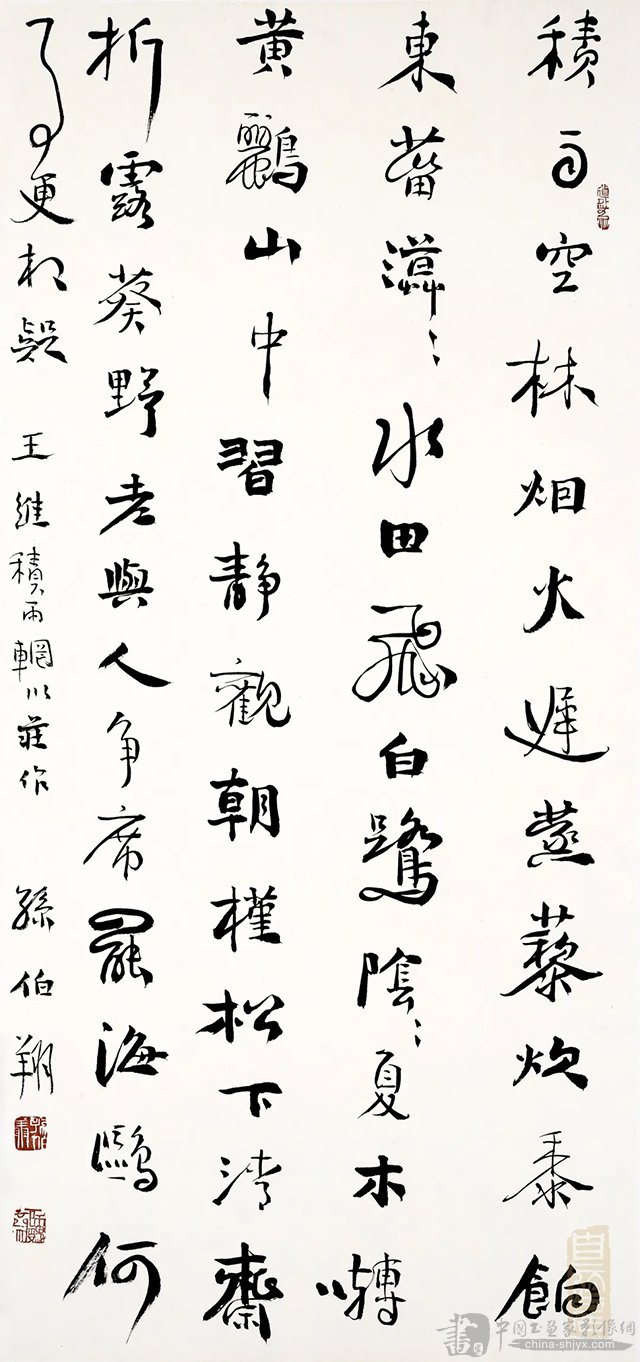 積雨空林烟火遲蒸藜炊黍餉
東菑漠〻水田飛白鷺陰〻夏木囀
黄鸝山中習靜觀朝槿松下清齋
折露葵野老與人争席罷海鷗何
事更相疑 王維積雨輞川莊作 孫伯翔
中國书画家影像網
china-shjyx.com